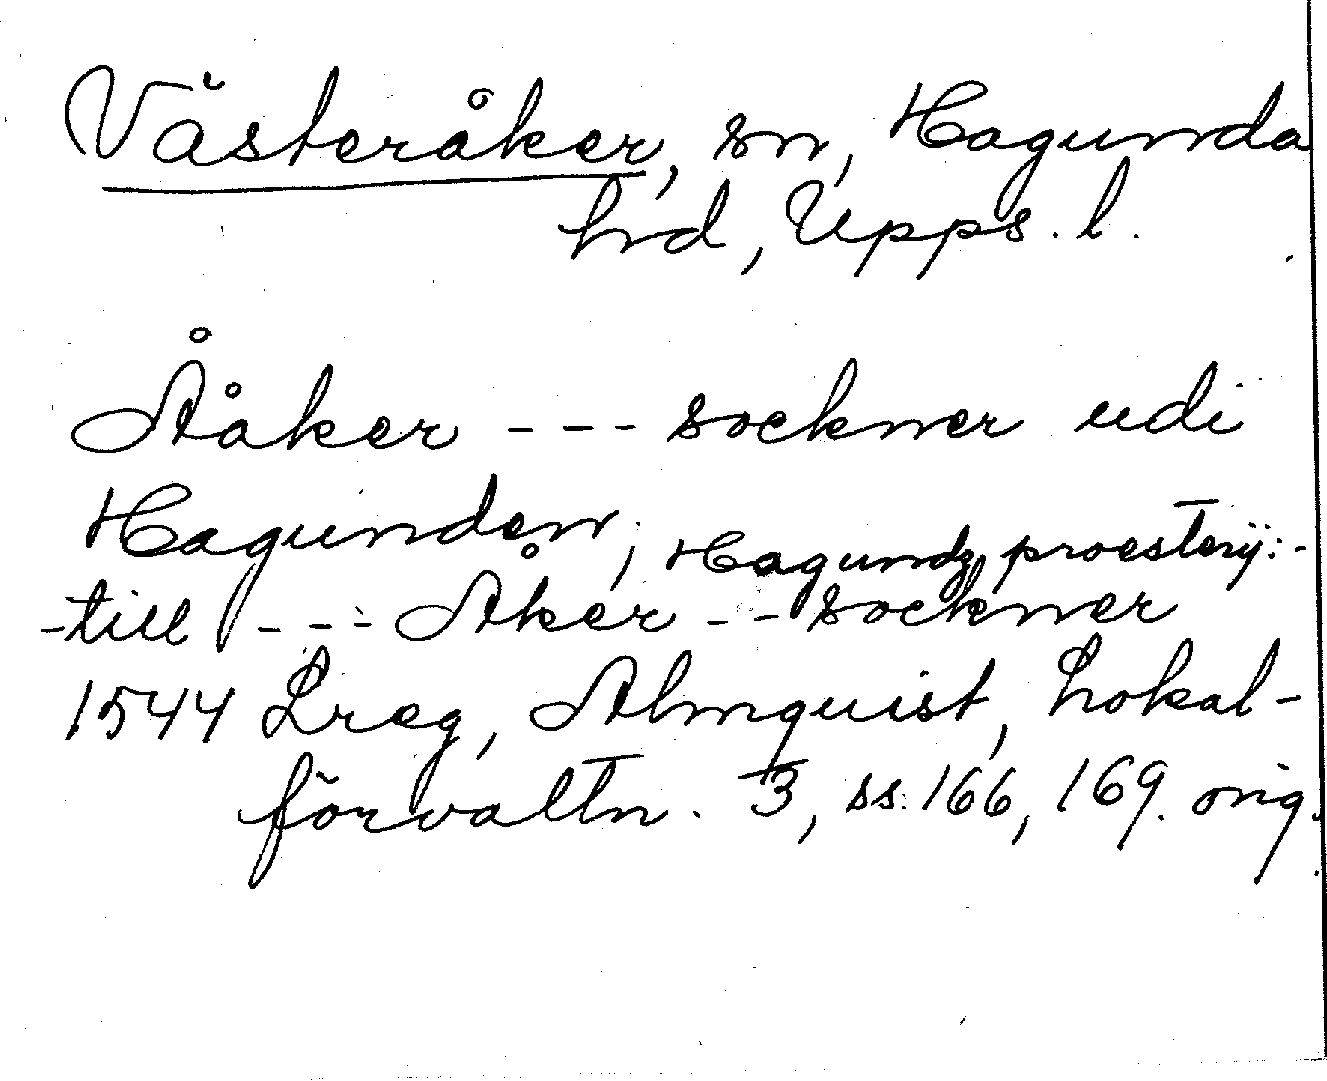 Västeråker, sn, Hagunda
hrd, Upps. l.
Ååker --- sockner udi
Hagunden, Hagundz proesterij:-
-till --- Åker --- sockner
1544 Lreg, Almquist, Lokal-
förvaltn. 3, ss. 166, 169. orig.